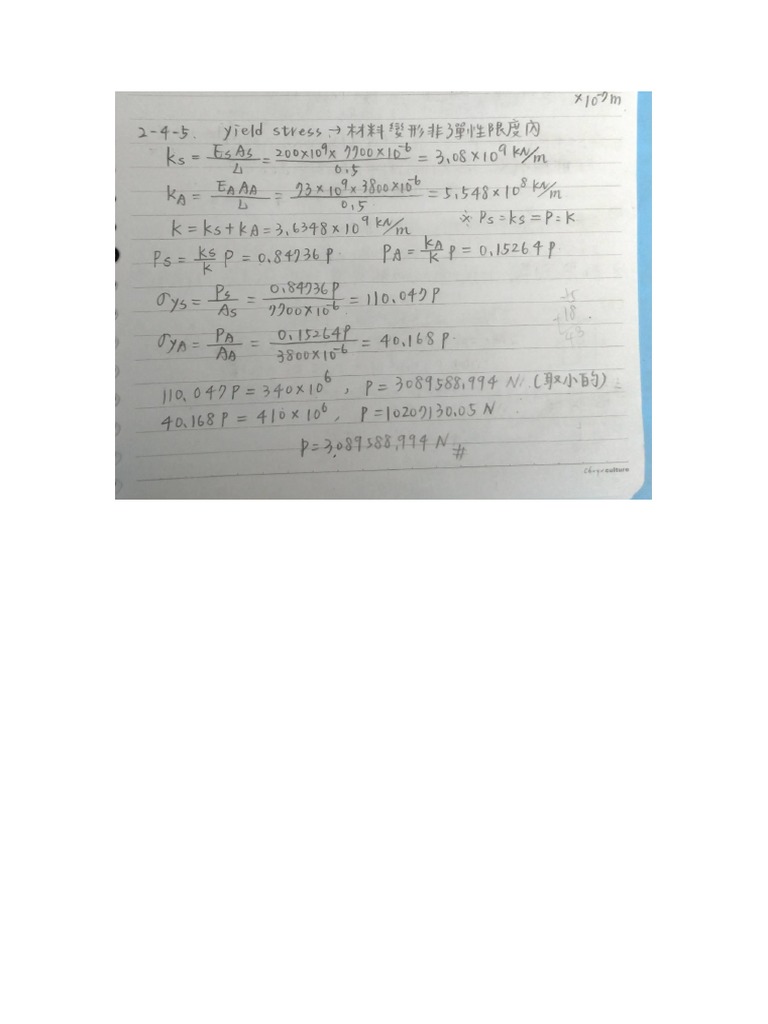 ×10⁻⁷m
2-4-5. yield stress → 材料變形非彈性限度內
ks = EsAs/L = 200×10⁹×7700×10⁻⁶/0.5 = 3.08×10⁹ kN/m
kA = EAAA/L = 73×10⁹×3800×10⁻⁶/0.5 = 5.548×10⁸ kN/m
k = ks+kA = 3.6348×10⁹ kN/m ※ Ps=ks=P=K
Ps = ks/k P = 0.84736P PA = kA/k P = 0.15264P
σys = Ps/As = 0.84736P/7700×10⁻⁶ = 110.047P
σyA = PA/AA = 0.15264P/3800×10⁻⁶ = 40.168P
18
43
110.047P = 340×10⁶, P = 3089588.994 N (取小的)
40.168P = 410×10⁶, P = 10207130.05 N
P = 3089588.994 N #
culture